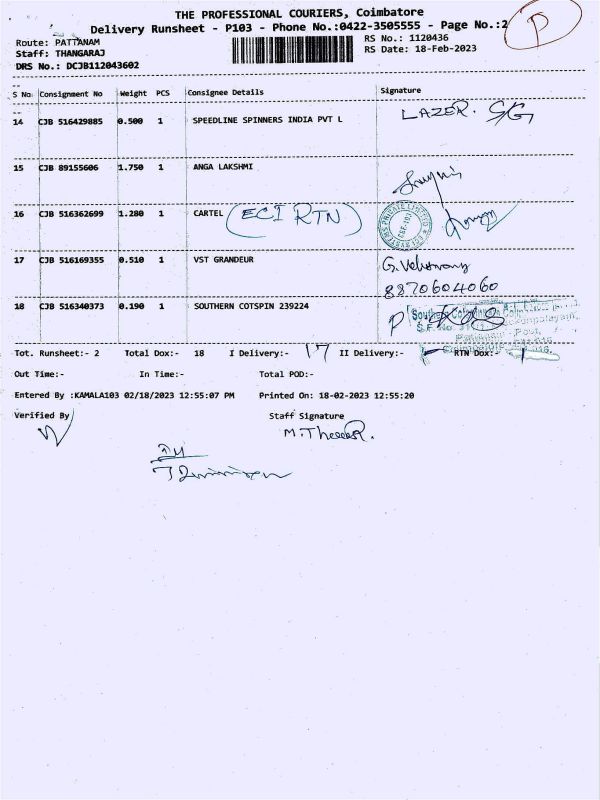 THE PROFESSIONAL COURIERS, Coimbatore
Delivery Runsheet - P103 - Phone No.:0422-3505555 - Page No.:2
P
Route: PATTANAM
RS No.: 1120436
Staff: THANGARAJ
RS Date: 18-Feb-2023
DRS No.: DCJB112043602
S No Consignment No Weight PCS Consignee Details Signature
14 CJB 516429885 0.500 1 SPEEDLINE SPINNERS INDIA PVT L LAZER.
15 CJB 89155606 1.750 1 ANGA LAKSHMI
16 CJB 516362699 1.280 1 CARTEL (ECI RTN)
17 CJB 516169355 0.510 1 VST GRANDEUR
8870604060
18 CJB 516340373 0.190 1 SOUTHERN COTSPIN 239224
Tot. Runsheet:- 2 Total Dox:- 18 I Delivery:- 17 II Delivery:- RTN Dox:-
Out Time:- In Time:- Total POD:-
Entered By :KAMALA103 02/18/2023 12:55:07 PM Printed On: 18-02-2023 12:55:20
Verified By Staff Signature